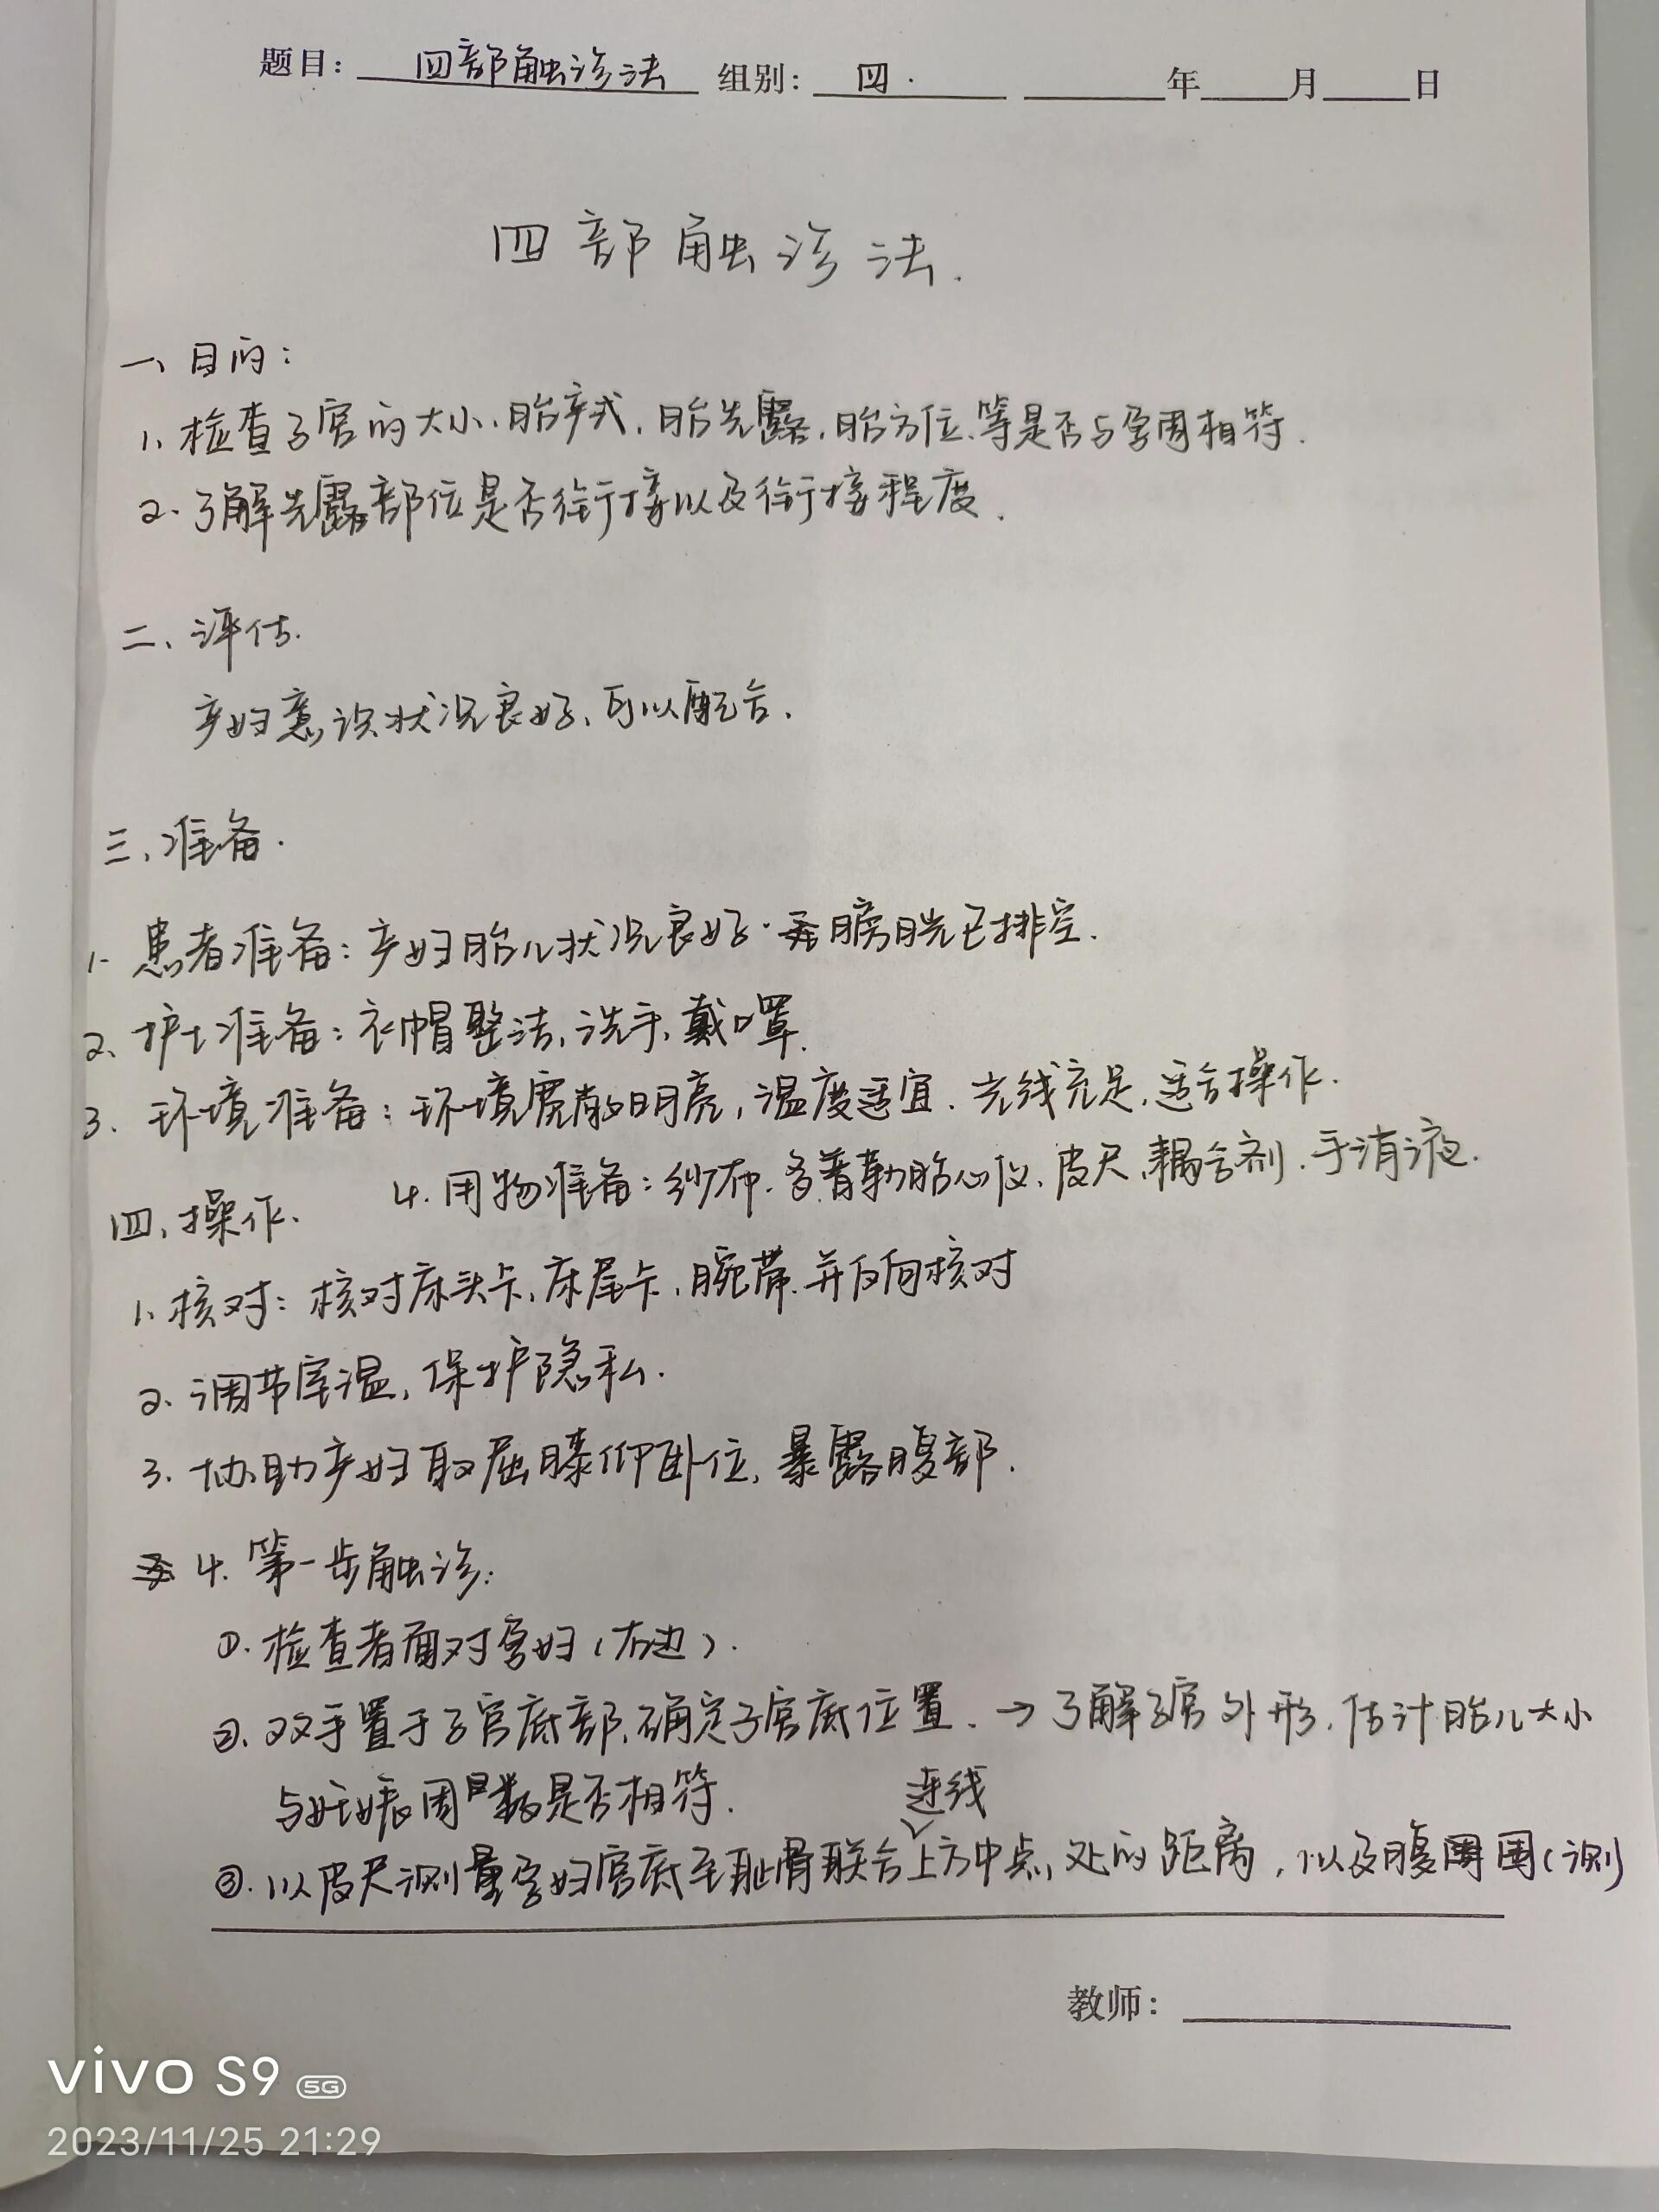 题目：四部触诊法 组别：四. 年 月 日
四部触诊法.
一、目的：
1、检查子宫的大小、胎产式，胎先露，胎方位、等是否与孕周相符.
2. 了解先露部位是否衔接以及衔接程度.
二、评估.
产妇意识状况良好，可以配合.
三、准备.
1. 患者准备：产妇胎儿状况良好.膀胱已排空.
2、护士准备：衣帽整洁，洗手，戴口罩.
3. 环境准备：环境宽敞明亮，温度适宜.光线充足，适合操作.
4. 用物准备：纱布.多普勒胎心仪、皮尺、耦合剂.手消液.
四、操作.
1、核对：核对床头卡，床尾卡，腕带.并反向核对
2、调节室温，保护隐私.
3. 协助产妇取屈膝仰卧位，暴露腹部.
4. 第一步触诊：
①. 检查者面对孕妇（右边）.
②. 双手置于子宫底部，确定子宫底位置. → 了解子宫外形，估计胎儿大小
与妊娠周数是否相符.
连线
③. 以皮尺测量孕妇宫底至耻骨联合上方中点处的距离，以及腹围（测）
教师：
vivo S9 5G
2023/11/25 21:29